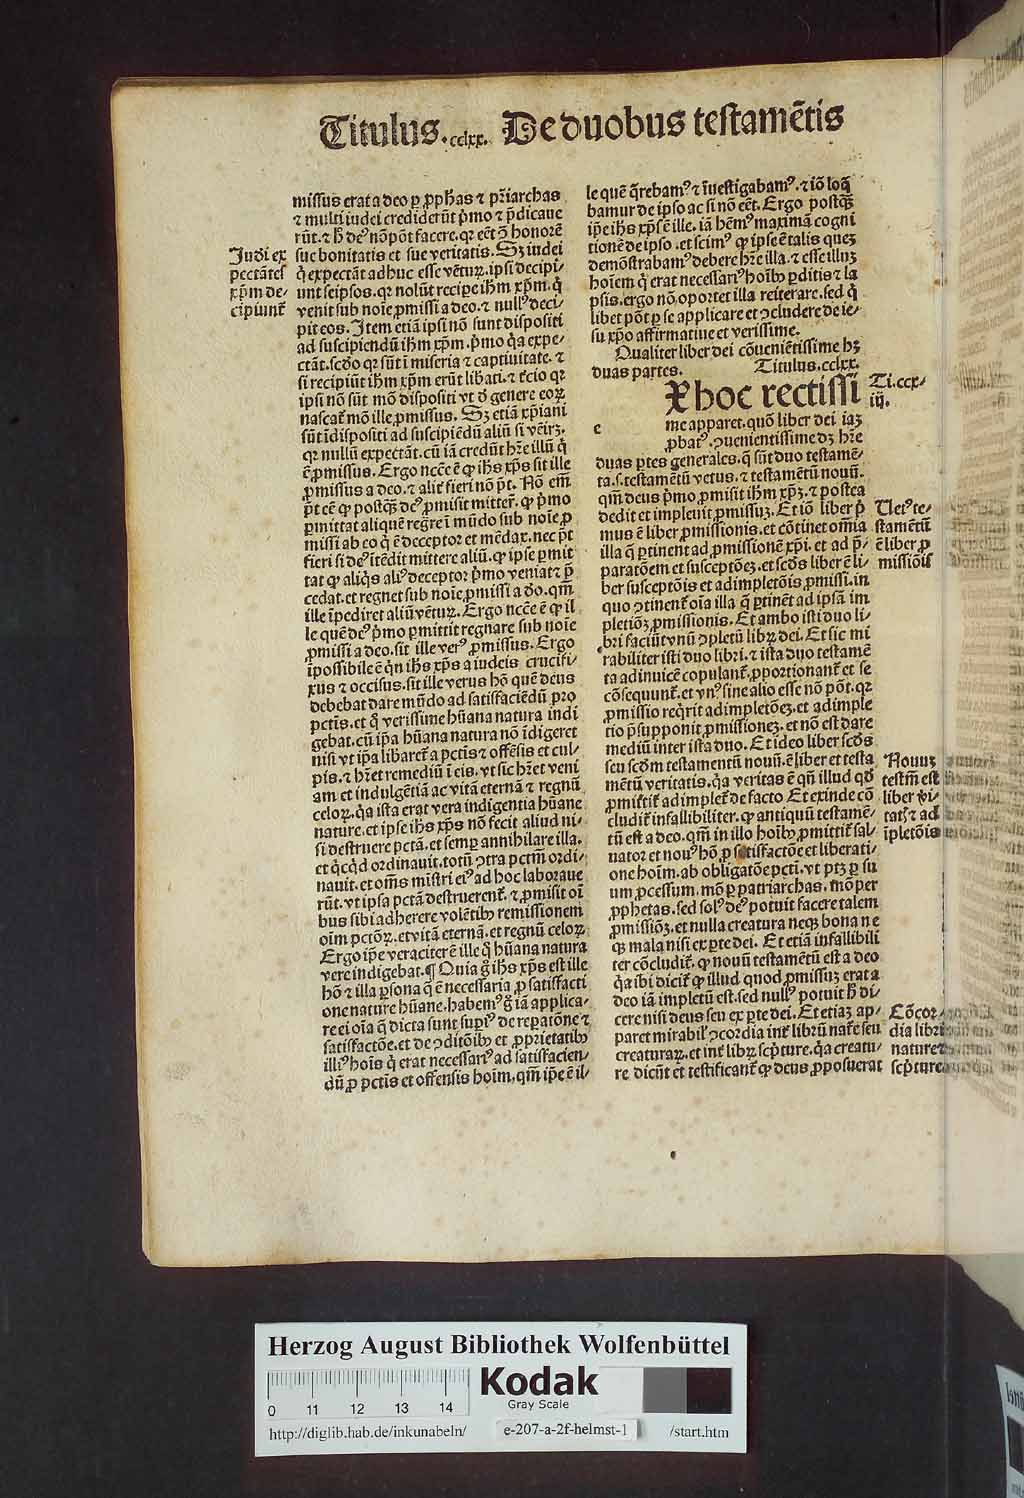 Titulus .cclxx. De duobus testamētis
missus erat a deo ꝑ ꝓphas ⁊ pr̄iarchas
⁊ multi iudei crediderūt p̄mo ⁊ p̄dicaue
rūt. ⁊ h̄ deꝰ nō pōt facere. qꝛ eēt ꝯ̄ honorē
sue bonitatis et sue veritatis. Sꝫ iudei
q̇ expectāt adhuc esse vētuꝝ. ipsi decipi⸗
unt seipsos. qꝛ nolūt recipe ihm̄ xp̄m. q̇
venit sub noīe ꝓmissi a deo. ⁊ nullꝰ deci⸗
pit eos. Item etiā ipsi nō sunt dispositi
ad suscipiendū ihm̄ xp̄m. p̄mo q̇a expe⸗
ctāt. scd̄o qꝛ sūt ī miseria ⁊ captiuitate. ⁊
si recipiūt ihm̄ xp̄m erūt lib̄ati. ⁊ t̄cio qꝛ
ipsi nō sūt mō dispositi vt d̄ genere eoꝝ
nascat̄ mō ille ꝓmissus. Sꝫ etiā xp̄iani
sūt īdispositi ad suscipiēdū aliū si veīrꝫ.
qꝛ nullū expectāt. cū iā credūt hr̄e illū q̇
ē ꝓmissus. Ergo nccē ē ꝙ ihs xp̄s sit ille
ꝓmissus a deo. ⁊ alit̄ fieri nō p̄t. Nō em̄
p̄t cē ꝙ postq̄ꝫ deꝰ ꝓmisit mitter̄. ꝙ p̄mo
ꝑmittat aliquē regr̄e ī mūdo sub noīe ꝓ
missi ab eo q̇ ē deceptor et mēdax. nec p̄t
fieri si deꝰ ītēdit mittere aliū. ꝙ ipse ꝑmit
tat ꝙ aliq̇s aliꝰ deceptor p̄mo veniat ⁊ p̄
cedat. et regnet sub noīe ꝓmissi a deo. qm̄
ille īpediret aliū vētuꝝ. Ergo nccē ē ꝙ il
le quē deꝰ p̄mo ꝑmittit regnare sub noīe
ꝓmissi a deo. sit ille verꝰ ꝓmissus. Ergo
īpossibile ē q̇n ihs xp̄s a iudeis crucifi⸗
xus ⁊ occisus. sit ille verus hō quē deus
debebat dare mūdo ad satisfaciēdū pro
pctīs. et q̇ verissime hūana natura indi
gebat. cū ip̄a hūana natura nō īdigeret
nisi vt ip̄a libaret̄ a pctīs ⁊ offēsis et cul⸗
pis. ⁊ hr̄et remediū ī eis. vt sic hr̄et veni
am et indulgētiā ac vitā eternā ⁊ regnū
celoꝝ. q̇a ista erat vera indigentia hūane
nature. et ipse ihs xp̄s nō fecit aliud ni⸗
si destruere pctā. et semꝑ annihilare illa.
et q̇cq̇d ordinauit. totū ꝯtra pctm̄ ordi⸗
nauit. et oms̄ mīstri eiꝰ ad hoc laboraue
rūt. vt ipsa pctā destruerent̄. ⁊ ꝓmisit oī
bus sibi adherere volētibꝰ remissionem
oīm pctōꝝ. et vitā eternā. et regnū celoꝝ
Ergo ip̄e veraciter ē ille q̇ hūana natura
vere indigebat. ¶ Quia g̊ ihs xp̄s est ille
hō ⁊ illa ꝑsona q̄ ē necessaria ꝓ satisfacti
one nature hūane. habemꝰ g̊ iā applica⸗
re ei oīa q̄ dicta sunt supiꝰ de repatōne ⁊
satisfactōe. et de ꝯditōibꝰ et ꝓprietatibꝰ
illiꝰ hoīs q̇ erat necessariꝰ ad satisfacien⸗
dū ꝓ pctīs et offensis hoīm. qm̄ ip̄e ē il⸗
Iudi ex
pectātes
xp̄m de⸗
cipiunt̄
le quē q̄rebamꝰ ⁊ īuestigabamꝰ. ⁊ iō loq̄
bamur de ipso ac si nō eēt. Ergo postq̄ꝫ
ip̄e ihs xp̄s ē ille. iā hēmꝰ maximā cogni
tionē de ipso. et scimꝰ ꝙ ipse ē talis queꝫ
demōstrabamꝰ debere hr̄e illa. ⁊ esse illuꝫ
hoīem q̇ erat necessariꝰ hoībꝰ ꝑditis ⁊ la
psis. ergo nō oportet illa reiterare. sed q̇
libet pōt ꝑ se applicare et ꝯcludere de ie⸗
su xp̄o affirmatiue et verissime.
Qualiter liber dei cōuenientissime hꝫ
duas partes. Titulus. cclxx.
e
X hoc rectissi
me apparet. quō liber dei iaꝫ
ꝓbatꝰ. ꝯuenientissime dꝫ hr̄e
duas ꝑtes generales. q̄ sūt duo testamē⸗
ta. s. testamētū vetus. ⁊ testamētū nouū.
qm̄ deus p̄mo ꝓmisit ihm̄ xp̄ꝫ. ⁊ postea
dedit et impleuit ꝓmissuꝫ. Et iō liber p̄
mus ē liber ꝓmissionis. et cōtinet omīa
illa q̄ ꝑtinent ad ꝓmissionē xp̄i. et ad p̄⸗
paratōem et susceptōeꝫ. et scd̄s liber ē li⸗
ber susceptōis et adimpletōis ꝓmissi. in
quo ꝯtinent̄ oīa illa q̄ ꝑtinēt ad ipsā im
pletiōꝫ ꝓmissionis. Et ambo isti duo li⸗
bri faciūt vnū ꝯpletū libꝝ dei. Et sic mi
rabiliter isti duo libri. ⁊ ista duo testamē
ta adinuicē copulant̄. ꝓportionant̄ et se
cōsequunt̄. et vnꝰ sine alio esse nō pōt. qꝛ
ꝓmissio req̇rit adimpletōeꝫ. et adimple
tio p̄supponit ꝓmissioneꝫ. et nō est dare
mediū inter ista duo. Et ideo liber scd̄s
seu scd̄m testamentū nouū. ē liber et testa
mētū veritatis. q̇a veritas ē qn̄ illud qd̄
ꝓmittit̄ adimplet̄ de facto Et exinde cō
cludit̄ infallibiliter. ꝙ antiquū testamē⸗
tū est a deo. qm̄ in illo hoībꝰ ꝓmittit̄ sal⸗
uator et nouꝰ hō ꝓ satisfactōe et liberati⸗
one hoīm. ab obligatōe pctī. vt ptꝫ ꝑ su
um ꝓcessum. mō ꝑ patriarchas. mō per
ꝓphetas. sed solꝰ deꝰ potuit facere talem
ꝓmissiōꝫ. et nulla creatura neqꝫ bona ne
qꝫ mala nisi ex ꝑte dei. Et etiā infallibili
ter cōcludit̄. ꝙ nouū testamētū est a deo
q̇a ibi dicit̄ ꝙ illud quod ꝓmissuꝫ erat a
deo iā impletū est. sed nullꝰ potuit h̄ di⸗
cere nisi deus seu ex ꝑte dei. Et etiaꝫ ap⸗
paret mirabilꝭ ꝯcordia int̄ librū nat̄e seu
creaturaꝝ. et int̄ libꝝ scp̄ture. q̇a creatu⸗
re dicūt et testificant̄ ꝙ deus ꝓposuerat
Ti. ccx⸗
iij.
Uetꝰ te⸗
stamētū
ē liber ꝓ
missiōis
Nouuꝫ
testm̄ est
liber v̄i⸗
tatꝭ ⁊ ad
īpletōis
Cōcor⸗
dia libri
nature ⁊
scp̄ture
Herzog August Bibliothek Wolfenbüttel
0 11 12 13 14
Kodak
Gray Scale
http://diglib.hab.de/inkunabeln/ e-207-a-2f-helmst-1 /start.htm